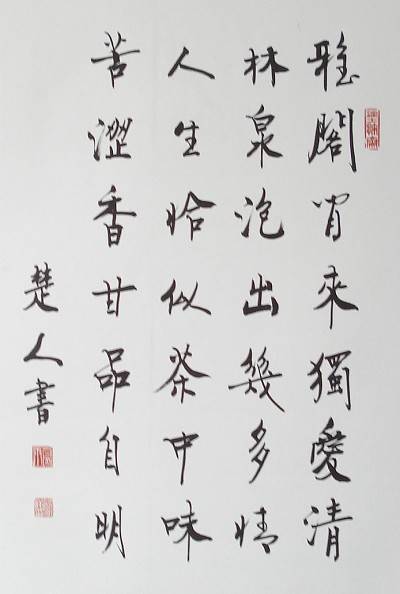 雅閣闲來獨愛清
林泉泡出幾多情
人生恰似茶中味
苦澀香甘品自明
楚人書